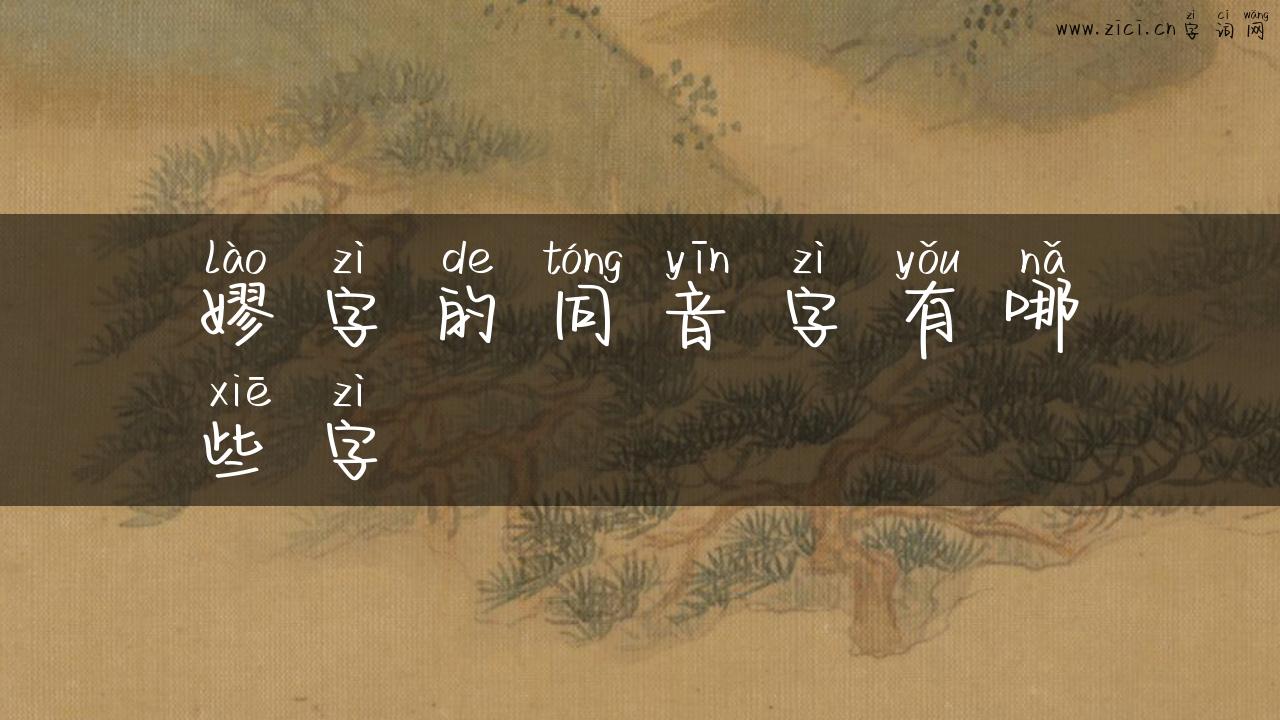 zì cí wǎng
www.zici.cn 字 词 网
lào zì de tóng yīn zì yǒu nǎ
嫪 字 的 同 音 字 有 哪
xiē zì
些 字